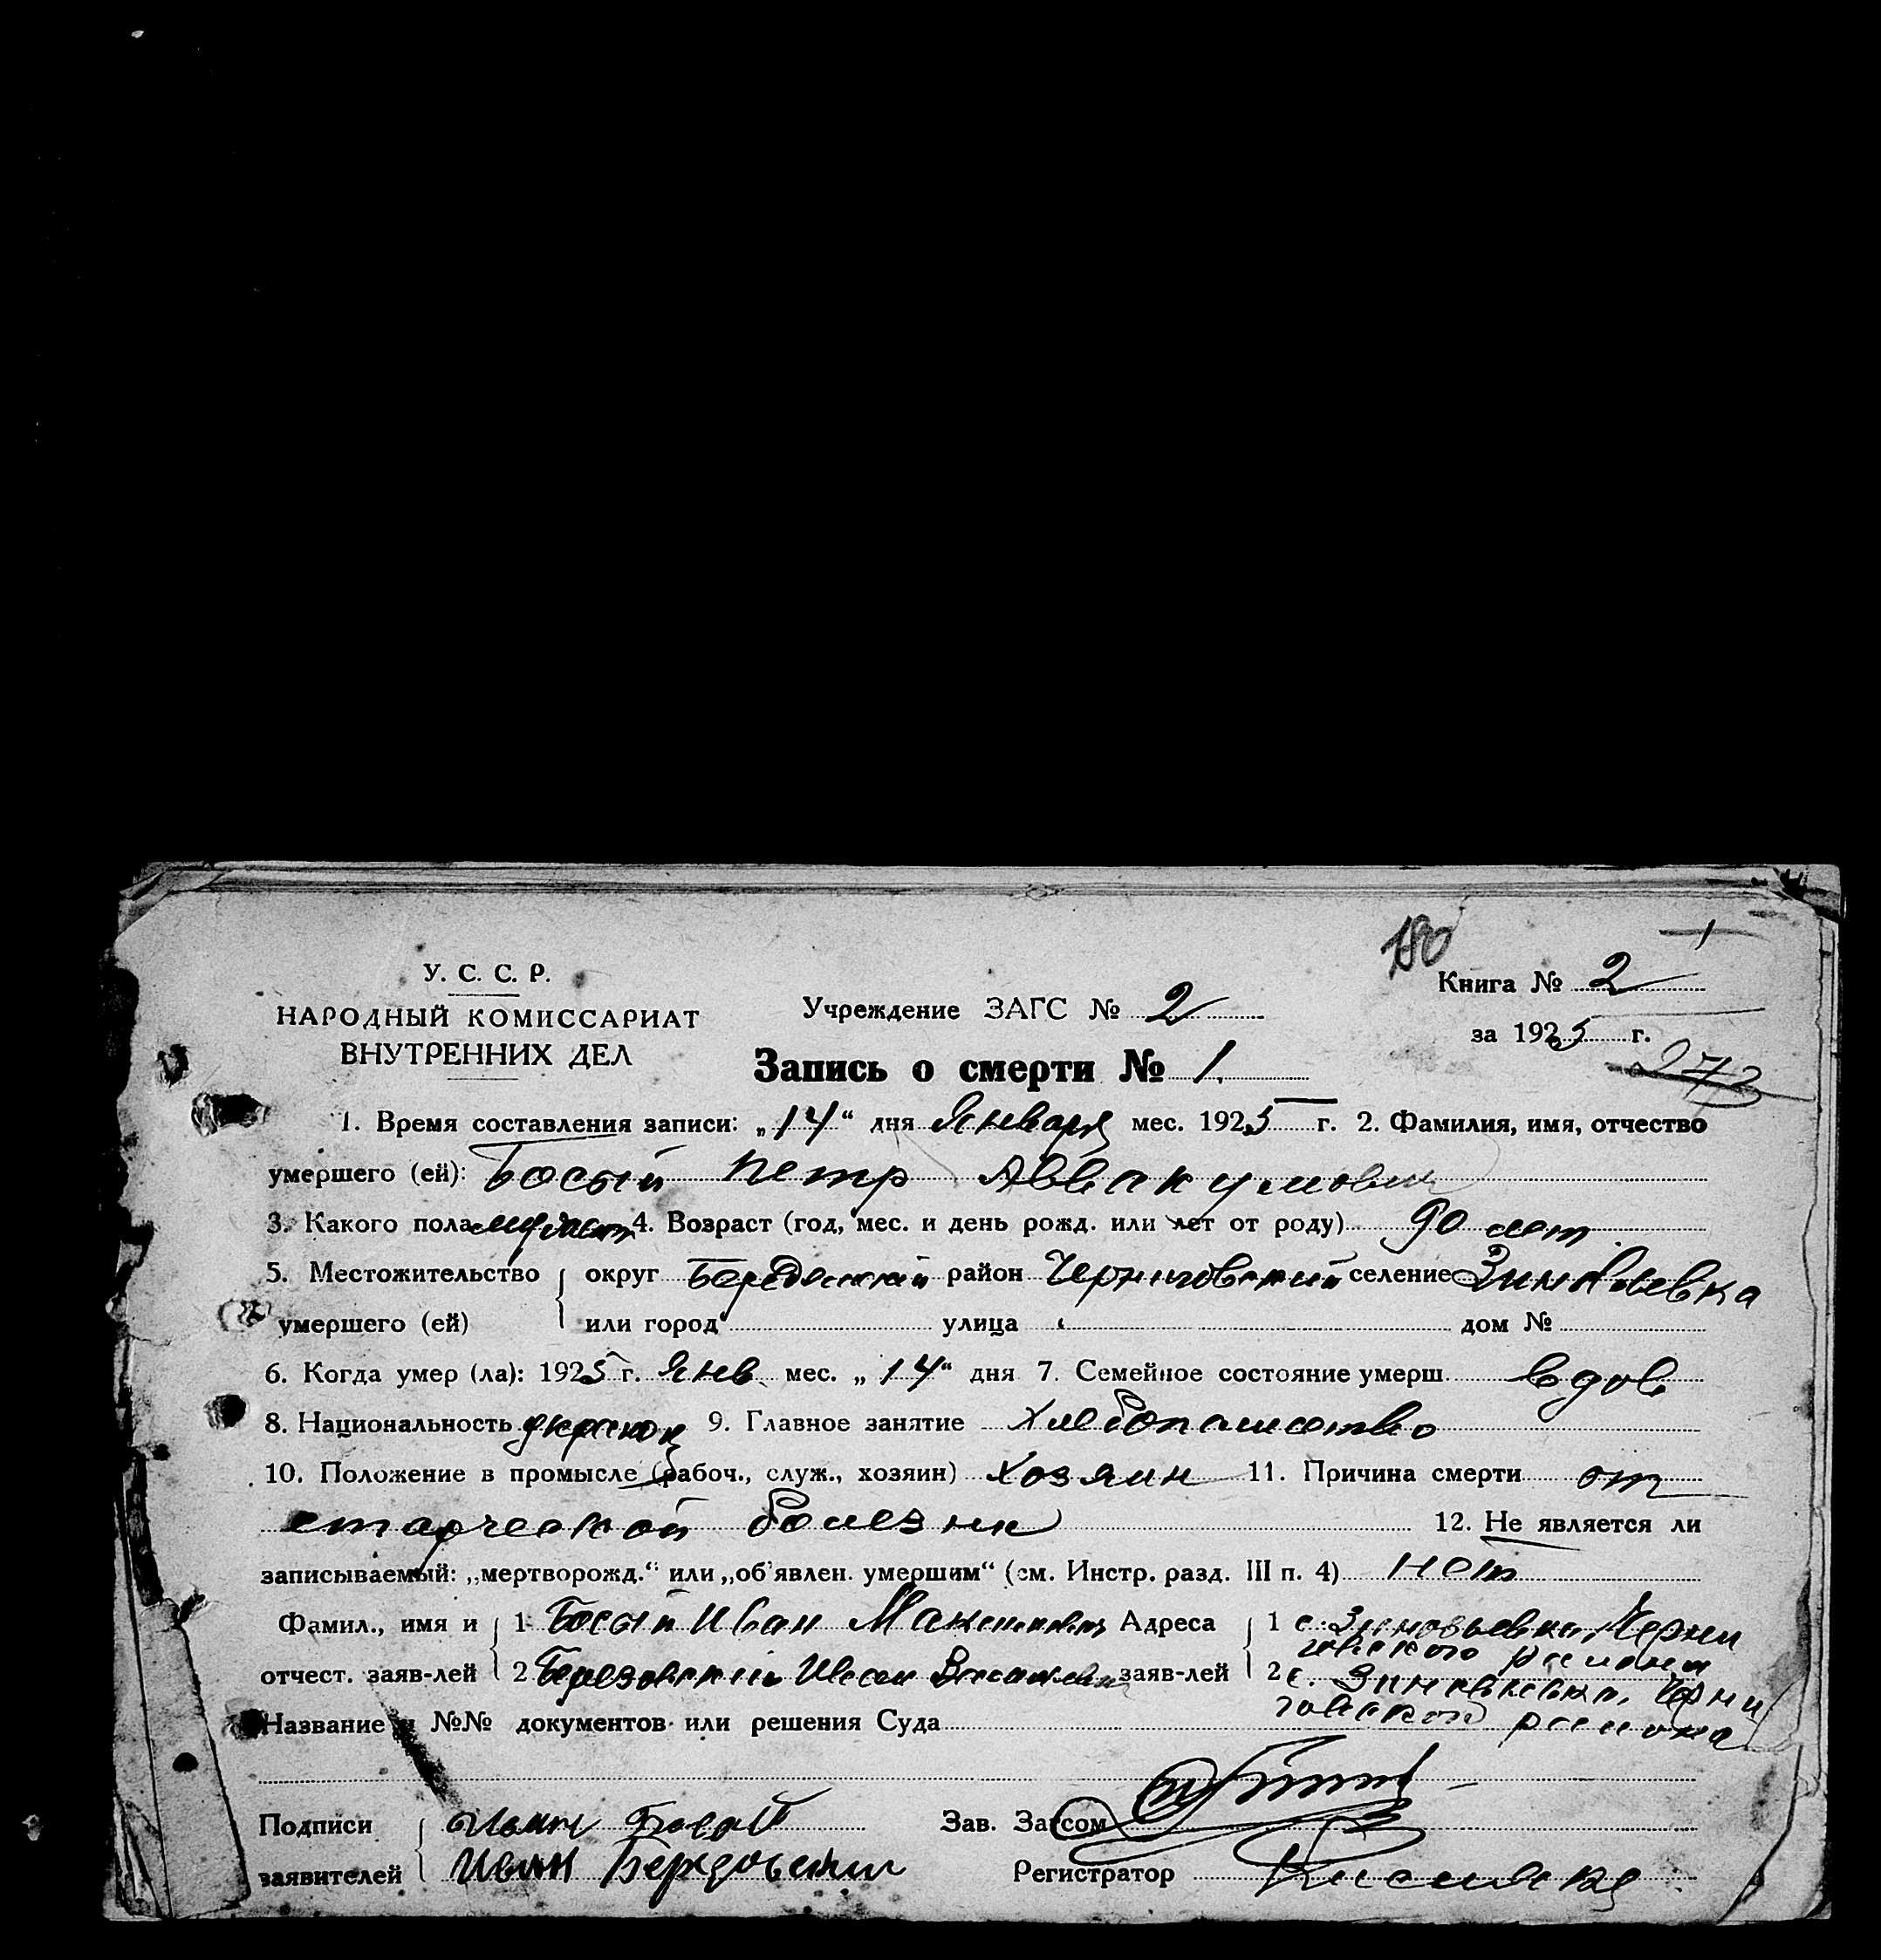 180
1
У. С. С. Р.
НАРОДНЫЙ КОМИССАРИАТ
ВНУТРЕННИХ ДЕЛ
Учреждение ЗАГС № 2
Книга № 2
за 1925 г.
273
Запись о смерти № 1.
1. Время составления записи: „14“ дня Января мес. 1925 г. 2. Фамилия, имя, отчество
умершего (ей): Босый Петр Аввакумович
3. Какого пола мужест 4. Возраст (год, мес. и день рожд. или лет от роду) 90 лет
5. Местожительство округ Бердянский район Черниговский селение Зиновьевка
умершего (ей) или город улица дом №
6. Когда умер (ла): 1925 г. Янв. мес. „14“ дня 7. Семейное состояние умерш. вдов
8. Национальность 9. Главное занятие Хлебопашество
10. Положение в промысле (рабоч., служ., хозяин) Хозяин 11. Причина смерти от
старческой болезни 12. Не является ли
записываемый: „мертворожд.“ или „об'явлен. умершим“ (см. Инстр. разд. III п. 4) нет
Фамил., имя и 1 Босый Иван Адреса 1 с. Зиновьевка, Черни
говского района
отчест. заяв-лей 2 Иван заяв-лей 2 с. Зиновьевка, Черни
говского района
Название и №№ документов или решения Суда
Подписи Иван Босый Зав. Загсом
заявителей Иван Регистратор